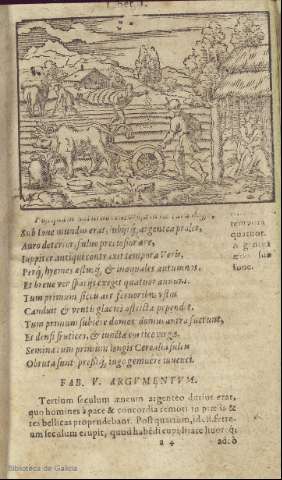 Sub Ioue mundus erat, subijt, argentea proles,
Auro deterior, fuluo pretiosior ære,
Iuppiter antiqui contraxit tempora Veris,
Perq́, hyemes æstusq́, & inæquales autumnos,
Et breue ver spatijs exegit quatuor annum.
Tum primum siccis aer feruoribus vstus
Canduit & ventis glacies astricta pependit.
Tum primum subiere domos, domus antra fuerunt,
Et densi frutices, & iunctæ cortice virgæ.
Semina tum primum longis Cerealia sulcis
Obruta sunt, pressiq́, iugo gemuere iuuenci.
tempora
quatuor.
sub
Ioue.
FAB. V. ARGVMENTVM.
Tertium seculum æneum argenteo durius erat,
quo homines à pace & concordia remoti in prælia &
res bellicas propendebant. Post quartum, idest, ferre-
um seculum erupit, quod habēdi cupiditate
a 4
Biblioteca de Galicia